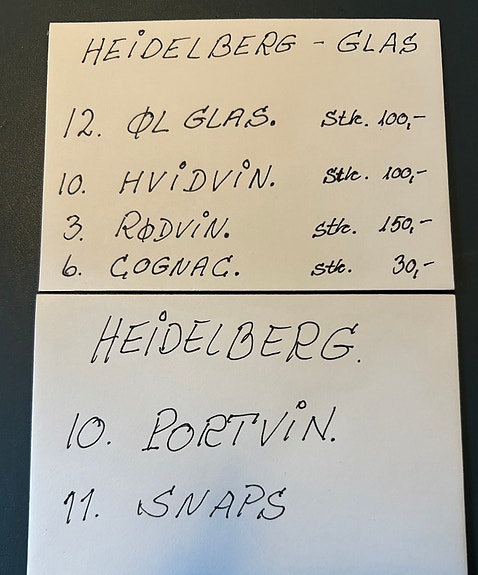 HEIDELBERG - GLAS
12. ØL GLAS. Stk. 100,-
10. HVIDVIN. Stk. 100,-
3. RØDVIN. Stk. 150,-
6. COGNAC. Stk. 30,-
HEIDELBERG.
10. PORTVIN.
11. SNAPS